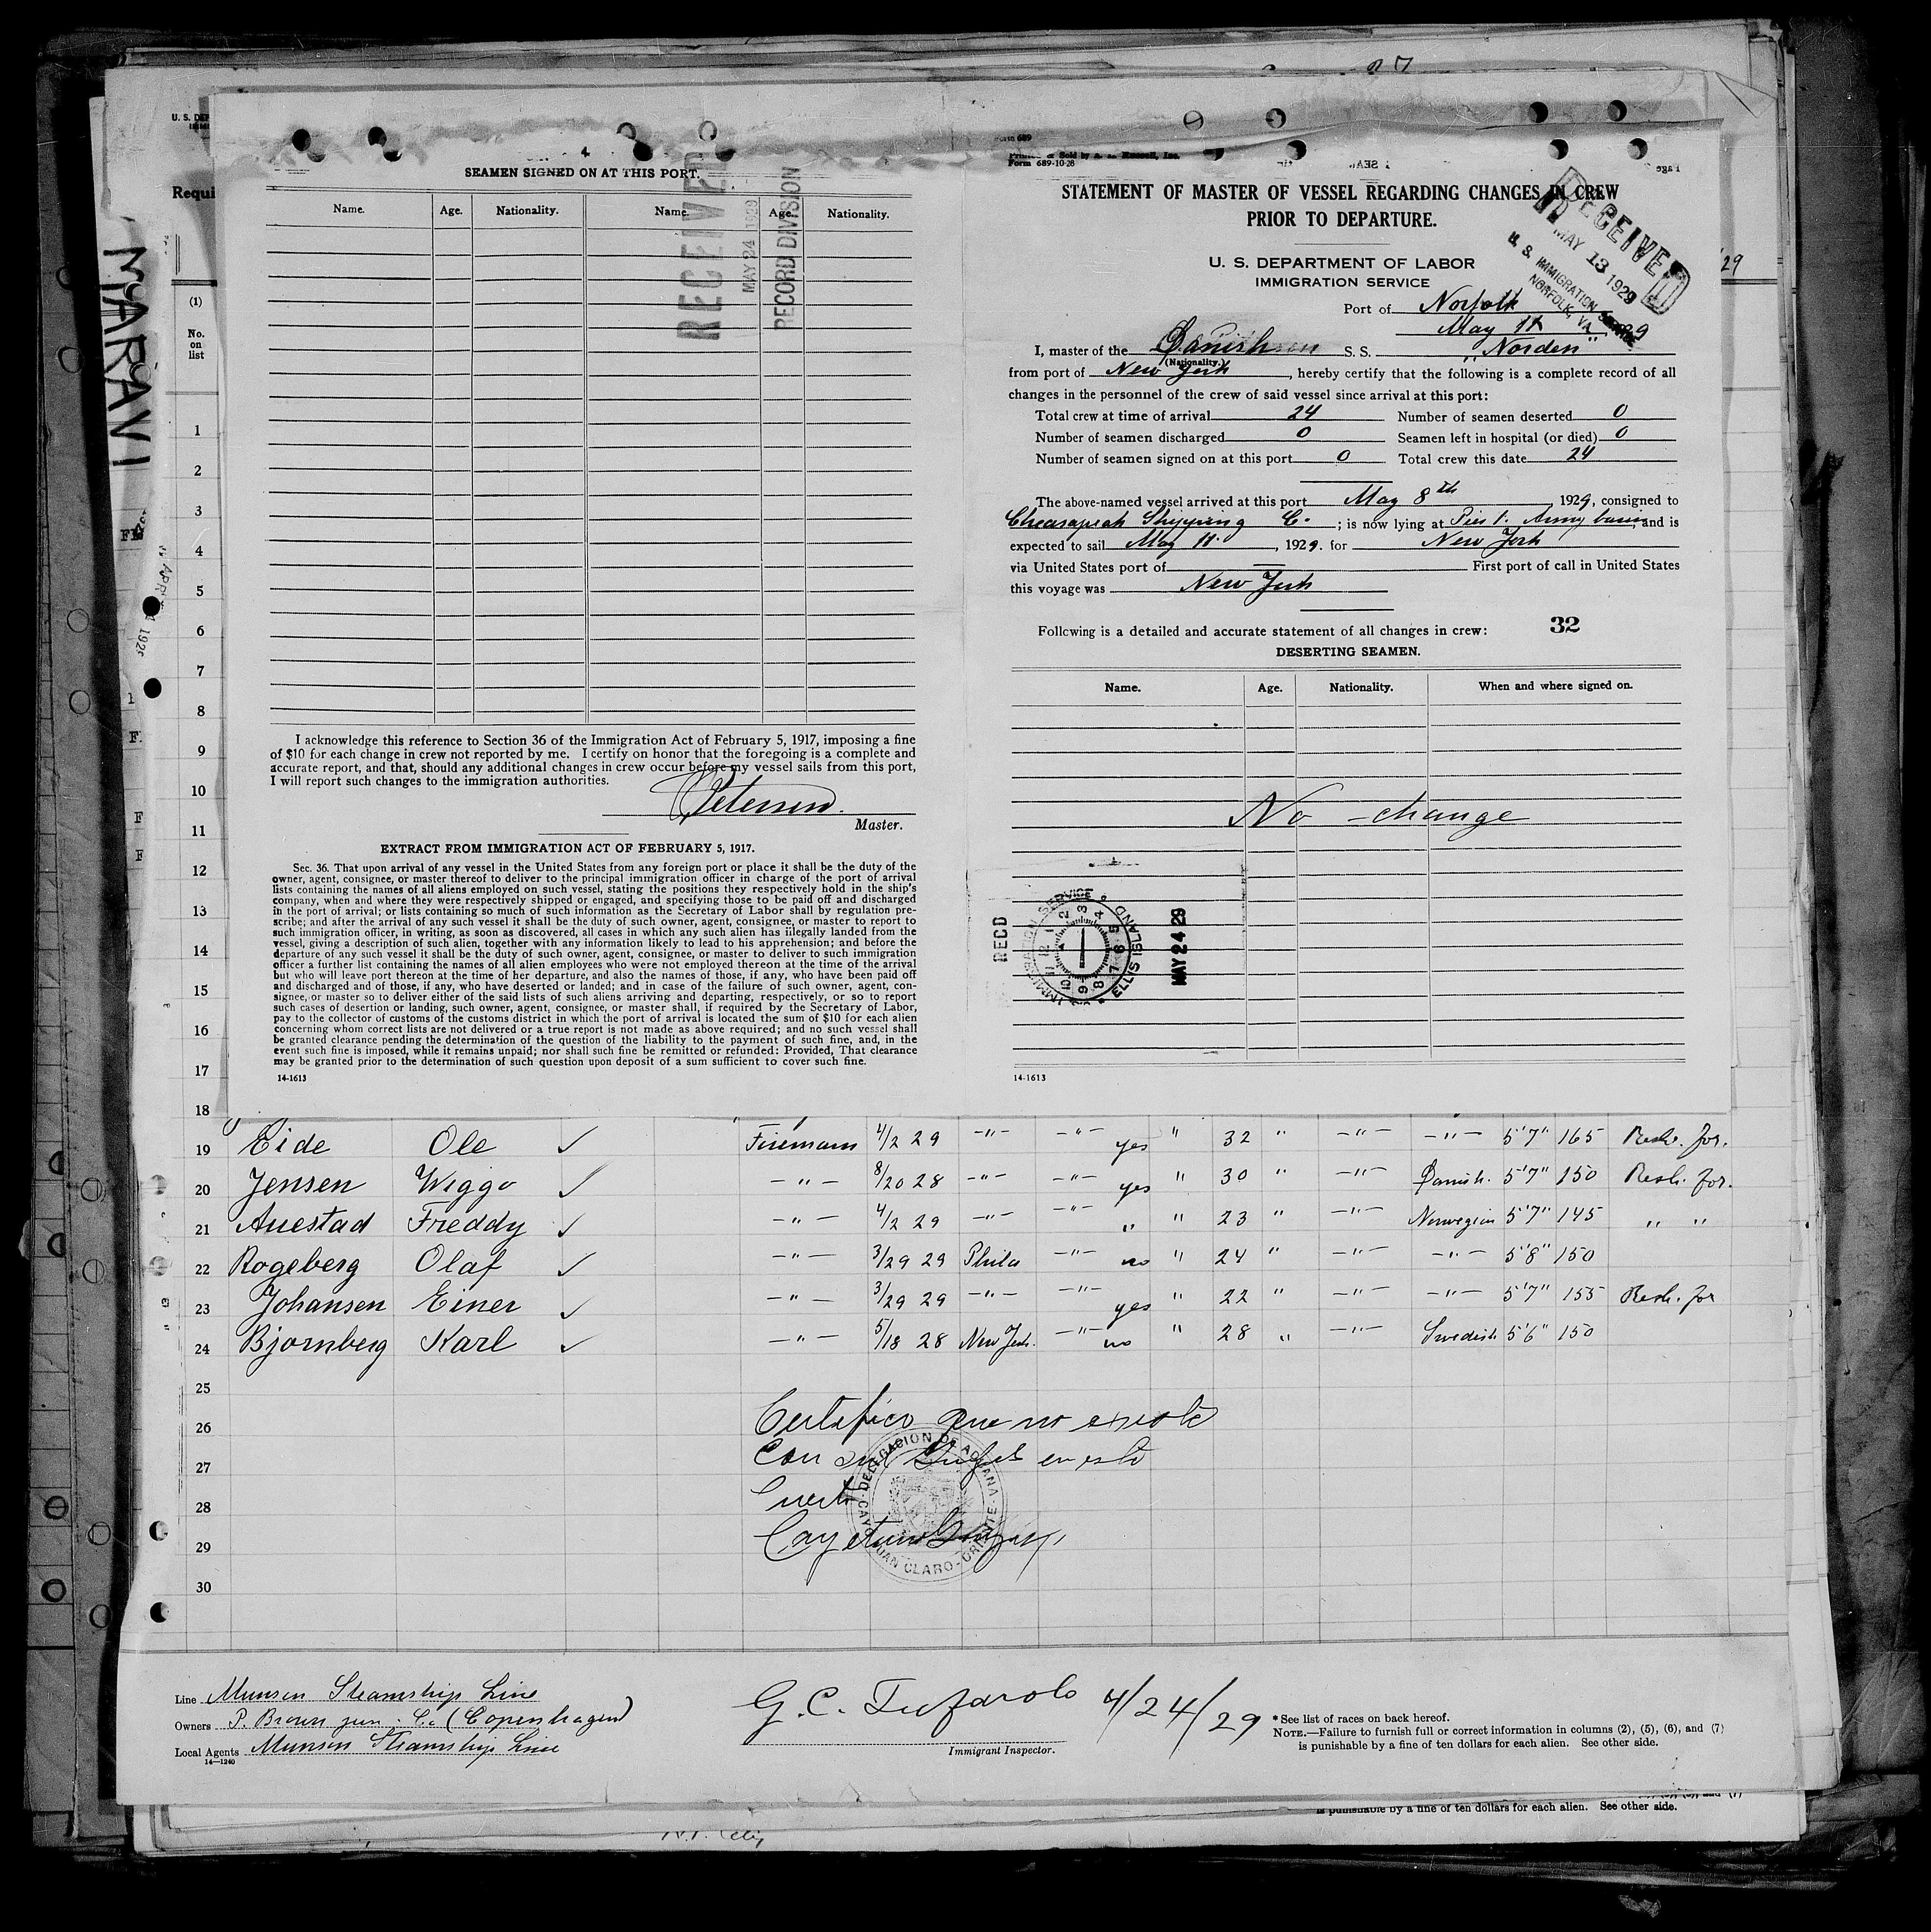 SEAMEN SIGNED ON AT THIS PORT.
Name. Age. Nationality. Name. Age. Nationality.
RECEIVED
MAY 24 1929
RECORD DIVISION
I acknowledge this reference to Section 36 of the Immigration Act of February 5, 1917, imposing a fine
of $10 for each change in crew not reported by me. I certify on honor that the foregoing is a complete and
accurate report, and that, should any additional changes in crew occur before my vessel sails from this port,
I will report such changes to the immigration authorities.
Petersen.
Master.
EXTRACT FROM IMMIGRATION ACT OF FEBRUARY 5, 1917.
Sec. 36. That upon arrival of any vessel in the United States from any foreign port or place it shall be the duty of the
owner, agent, consignee, or master thereof to deliver to the principal immigration officer in charge of the port of arrival
lists containing the names of all aliens employed on such vessel, stating the positions they respectively hold in the ship's
company, when and where they were respectively shipped or engaged, and specifying those to be paid off and discharged
in the port of arrival; or lists containing so much of such information as the Secretary of Labor shall by regulation pre-
scribe; and after the arrival of any such vessel it shall be the duty of such owner, agent, consignee, or master to report to
such immigration officer, in writing, as soon as discovered, all cases in which any such alien has illegally landed from the
vessel, giving a description of such alien, together with any information likely to lead to his apprehension; and before the
departure of any such vessel it shall be the duty of such owner, agent, consignee, or master to deliver to such immigration
officer a further list containing the names of all alien employees who were not employed thereon at the time of the arrival
but who will leave port thereon at the time of her departure, and also the names of those, if any, who have been paid off
and discharged and of those, if any, who have deserted or landed; and in case of the failure of such owner, agent, con-
signee, or master so to deliver either of the said lists of such aliens arriving and departing, respectively, or so to report
such cases of desertion or landing, such owner, agent, consignee, or master shall, if required by the Secretary of Labor,
pay to the collector of customs of the customs district in which the port of arrival is located the sum of $10 for each alien
concerning whom correct lists are not delivered or a true report is not made as above required; and no such vessel shall
be granted clearance pending the determination of the question of the liability to the payment of such fine, and, in the
event such fine is imposed, while it remains unpaid; nor shall such fine be remitted or refunded: Provided, That clearance
may be granted prior to the determination of such question upon deposit of a sum sufficient to cover such fine.
14-1613
Form 689
Printed & Sold by Inc.
Form 689-10-28
STATEMENT OF MASTER OF VESSEL REGARDING CHANGES IN CREW
PRIOR TO DEPARTURE.
U. S. DEPARTMENT OF LABOR
IMMIGRATION SERVICE
RECEIVED
MAY 13 1929
U. S. IMMIGRATION SERVICE
NORFOLK, VA.
Port of Norfolk
May 11 29
I, master of the Danish S. S. "Norden"
(Nationality.)
from port of New York, hereby certify that the following is a complete record of all
changes in the personnel of the crew of said vessel since arrival at this port:
Total crew at time of arrival 24 Number of seamen deserted 0
Number of seamen discharged 0 Seamen left in hospital (or died) 0
Number of seamen signed on at this port 0 Total crew this date 24
The above-named vessel arrived at this port May 8th, 1929, consigned to
Cheasapeak Shipping Co.; is now lying at Pier 1. Army basin, and is
expected to sail May 11., 1929. for New York
via United States port of — First port of call in United States
this voyage was New York
Following is a detailed and accurate statement of all changes in crew: 32
DESERTING SEAMEN.
Name. Age. Nationality. When and where signed on.
No - change
REC'D
IMMIGRATION SERVICE
ELLIS ISLAND
MAY 24 29
14-1613
MARAVI
Requi
(1)
No.
on
list
1
2
3
4
5
6
7
8
9
10
11
12
13
14
15
16
17
18
19 Eide Ole ✓ Fireman 4/2 29 -"- -"- yes " 32 " -"- -"- 5'7" 165 Resh. for.
20 Jensen Wiggo ✓ -"- 8/20 28 -"- -"- yes " 30 " -"- Danish. 5'7" 150 Resh. for.
21 Auestad Freddy ✓ -"- 4/2 29 -"- -"- " " 23 " -"- Norwegian 5'7" 145 " "
22 Rogeberg Olaf ✓ -"- 3/29 29 Phila -"- no " 24 " -"- -"- 5'8" 150
23 Johansen Einer ✓ -"- 3/29 29 -"- -"- yes " 22 " -"- -"- 5'7" 155 Resh. for
24 Bjornberg Karl ✓ -"- 5/18 28 New York. -"- no " 28 " -"- Swedish 5'6" 150
25
26
27
28
29
30
Certifico que no existe
en este
Puerto
DELEGACION DE ADUANA
CAYO JUAN CLARO - ORIENTE
Line Munson Steamship Line
Owners P. Brown jun. Co. (Copenhagen)
Local Agents Munson Steamship Line
14-1240
G. C. Tufarolo 4/24/29
Immigrant Inspector.
* See list of races on back hereof.
NOTE.—Failure to furnish full or correct information in columns (2), (5), (6), and (7)
is punishable by a fine of ten dollars for each alien. See other side.
is punishable by a fine of ten dollars for each alien. See other side.